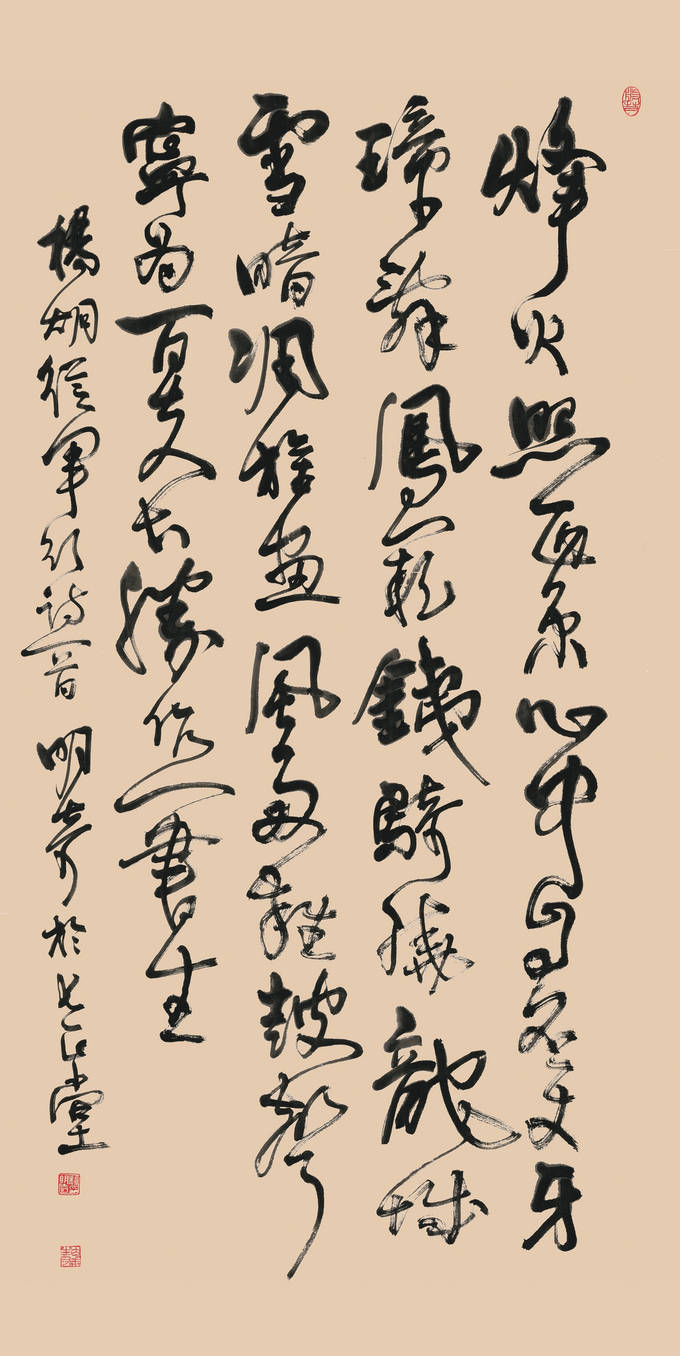 烽火照西京心中自不平牙
璋辭鳳闕鐵騎繞龍城
雪暗凋旗畫風多雜鼓聲
寧為百夫長勝作一書生
楊炯從軍行詩一首 明奇於堂